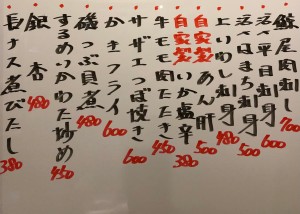 鯨尾肉刺し 700
活〆平目刺身 600
活〆はまち刺身 500
上いわし刺身 480
自家製あん肝 500
自家製いか塩辛 380
牛モモ肉たたき 450
サザエつぼ焼き 600
かきフライ 600
磯つぶ貝煮 480
するめいかわた炒め 450
銀杏 480
長ナス煮びたし 380